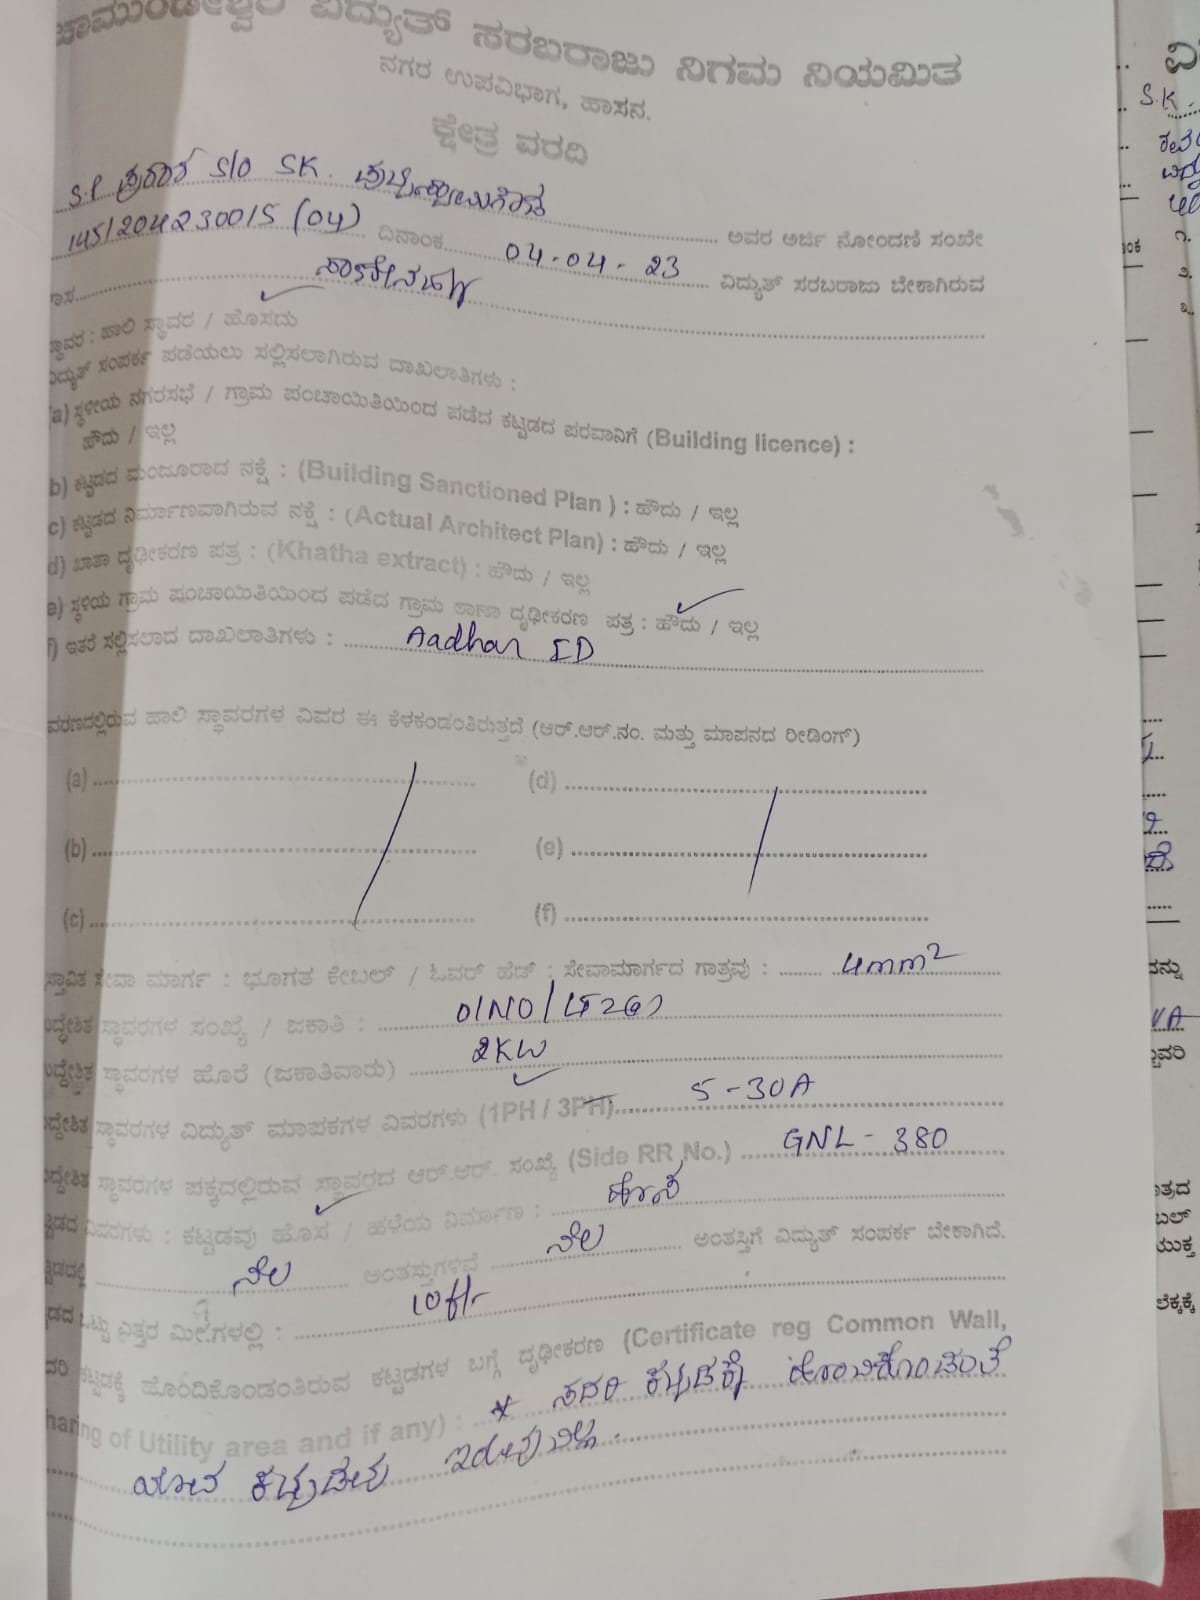 ಚಾಮುಂಡೇಶ್ವರಿ ವಿದ್ಯುತ್ ಸರಬರಾಜು ನಿಗಮ ನಿಯಮಿತ
ನಗರ ಉಪವಿಭಾಗ, ಹಾಸನ.
ಕ್ಷೇತ್ರ ವರದಿ
S.P ಪ್ರಕಾಶ S/O SK. ಅವರ ಅರ್ಜಿ ನೋಂದಣಿ ಸಂಖೇ
145/204230015 (04) ದಿನಾಂಕ 04-04-23 ವಿದ್ಯುತ್ ಸರಬರಾಜು ಬೇಕಾಗಿರುವ
ಸ್ಥಾವರ : ಹಾಲಿ ಸ್ಥಾವರ / ಹೊಸದು
ವಿದ್ಯುತ್ ಸಂಪರ್ಕ ಪಡೆಯಲು ಸಲ್ಲಿಸಲಾಗಿರುವ ದಾಖಲಾತಿಗಳು :
a) ಸ್ಥಳೀಯ ನಗರಸಭೆ / ಗ್ರಾಮ ಪಂಚಾಯಿತಿಯಿಂದ ಪಡೆದ ಕಟ್ಟಡದ ಪರವಾನಿಗೆ (Building licence) :
ಹೌದು / ಇಲ್ಲ
b) ಕಟ್ಟಡದ ಮಂಜೂರಾದ ನಕ್ಷೆ : (Building Sanctioned Plan ) : ಹೌದು / ಇಲ್ಲ
c) ಕಟ್ಟಡದ ನಿರ್ಮಾಣವಾಗಿರುವ ನಕ್ಷೆ : (Actual Architect Plan) : ಹೌದು / ಇಲ್ಲ
d) ಖಾತಾ ದೃಢೀಕರಣ ಪತ್ರ : (Khatha extract) : ಹೌದು / ಇಲ್ಲ
e) ಸ್ಥಳಿಯ ಗ್ರಾಮ ಪಂಚಾಯಿತಿಯಿಂದ ಪಡೆದ ಗ್ರಾಮ ಠಾಣಾ ದೃಢೀಕರಣ ಪತ್ರ : ಹೌದು / ಇಲ್ಲ
f) ಇತರೆ ಸಲ್ಲಿಸಲಾದ ದಾಖಲಾತಿಗಳು : Aadhar ID
ವರಣದಲ್ಲಿರುವ ಹಾಲಿ ಸ್ಥಾವರಗಳ ವಿವರ ಈ ಕೆಳಕಂಡಂತಿರುತ್ತದೆ (ಆರ್.ಆರ್.ನಂ. ಮತ್ತು ಮಾಪನದ ರೀಡಿಂಗ್)
(a) (d)
(b) (e)
(c) (f)
ಸ್ತಾವಿತ ಸೇವಾ ಮಾರ್ಗ : ಭೂಗತ ಕೇಬಲ್ / ಓವರ್ ಹೆಡ್ : ಸೇವಾಮಾರ್ಗದ ಗಾತ್ರವು : 4mm2
ಉದ್ದೇಶಿತ ಸ್ಥಾವರಗಳ ಸಂಖ್ಯೆ / ಜಕಾತಿ : 01NO/
ಉದ್ದೇಶಿತ ಸ್ಥಾವರಗಳ ಹೊರೆ (ಜಕಾತಿವಾರು) 2KW
ಉದ್ದೇಶಿತ ಸ್ಥಾವರಗಳ ವಿದ್ಯುತ್ ಮಾಪಕಗಳ ವಿವರಗಳು (1PH / 3PH) 5-30A
ಉದ್ದೇಶಿತ ಸ್ಥಾವರಗಳ ಪಕ್ಕದಲ್ಲಿರುವ ಸ್ಥಾವರದ ಆರ್.ಆರ್. ಸಂಖ್ಯೆ (Side RR No.) GNL-380
ಟ್ಟಡದ ವಿವರಗಳು : ಕಟ್ಟಡವು ಹೊಸ / ಹಳೆಯ ನಿರ್ಮಾಣ : ಹೊಸ
ಟ್ಟಡದಲ್ಲಿ ನೆಲ ಅಂತಸ್ತುಗಳಿವೆ ನೆಲ ಅಂತಸ್ತಿಗೆ ವಿದ್ಯುತ್ ಸಂಪರ್ಕ ಬೇಕಾಗಿದೆ.
ಡದ ಒಟ್ಟು ಎತ್ತರ ಮೀ.ಗಳಲ್ಲಿ : 10ft
ದರಿ ಕಟ್ಟಡಕ್ಕೆ ಹೊಂದಿಕೊಂಡಂತಿರುವ ಕಟ್ಟಡಗಳ ಬಗ್ಗೆ ದೃಢೀಕರಣ (Certificate reg Common Wall,
haring of Utility area and if any) : * ಸದರಿ ಕಟ್ಟಡಕ್ಕೆ ಹೊಂದಿಕೊಂಡಂತೆ
ಯಾವ ಕಟ್ಟಡವು ಇರುವುದಿಲ್ಲ.